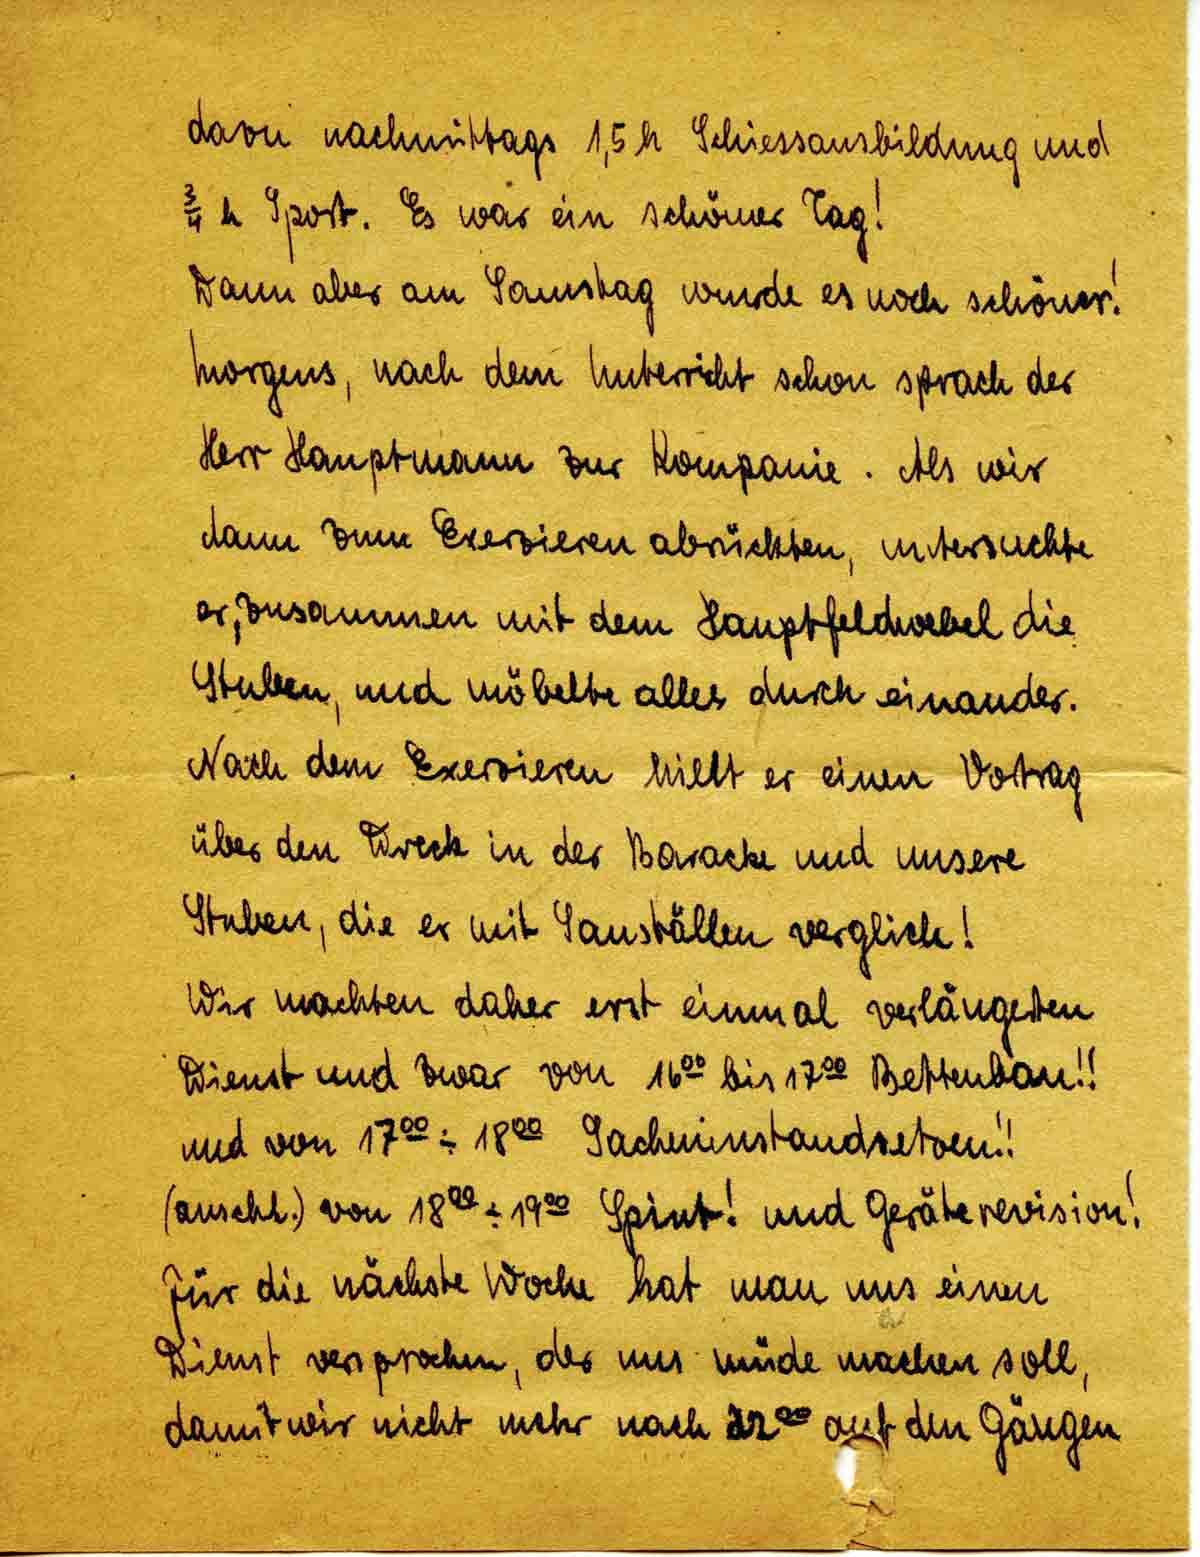 davon nachmittags 1,5 h Schiessausbildung und
3/4 h Sport. Es war ein schöner Tag!
Dann aber am Samstag wurde es noch schöner!
Morgens, nach dem Unterricht schon sprach der
Herr Hauptmann zur Kompanie. Als wir
dann zum Exerzieren abrückten, untersuchte
er, zusammen mit dem Hauptfeldwebel die
Stuben, und möbelte alles durch einander.
Nach dem Exerzieren hillt er einen Votrag
über den Dreck in der Baracke und unsere
Stuben, die er mit Sauställen verglich!
Wir machten daher erst einmal verlängerten
Dienst und zwar von 16⁰⁰ bis 17⁰⁰ Bettenbau!!
und von 17⁰⁰ ÷ 18⁰⁰ Sacheninstandsetzen!!
(anschl.) von 18⁰⁰ ÷ 19⁰⁰ Spint! und Geräterevision!
Für die nächste Woche hat man uns einen
Dienst versprochen, der uns müde machen soll,
damit wir nicht mehr nach 22⁰⁰ auf den Gängen